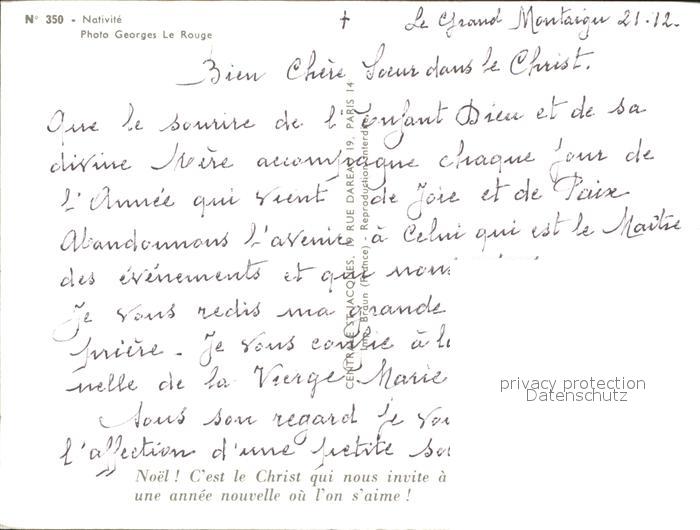 N° 350 - Nativité
Photo Georges Le Rouge
✝
Le Grand Montaigu 21.12.
Bien Chère Sœur dans le Christ.
Que le sourire de l'Enfant Dieu et de sa
divine Mère accompagne chaque jour de
l'Année qui vient de Joie et de Paix
Abandonnons l'avenir à Celui qui est le Maître
des événements et qui nous
Je vous redis ma grande
prière - Je vous confie à la
nelle de la Vierge Marie
Sous son regard je vou
l'affection d'une petite sœ
CENTRALE ST-JACQUES, 19 RUE DAREAU 19, PARIS 14
Imp. Braun (France) Reproduction interdite
privacy protection
Datenschutz
Noël ! C'est le Christ qui nous invite à
une année nouvelle où l'on s'aime !